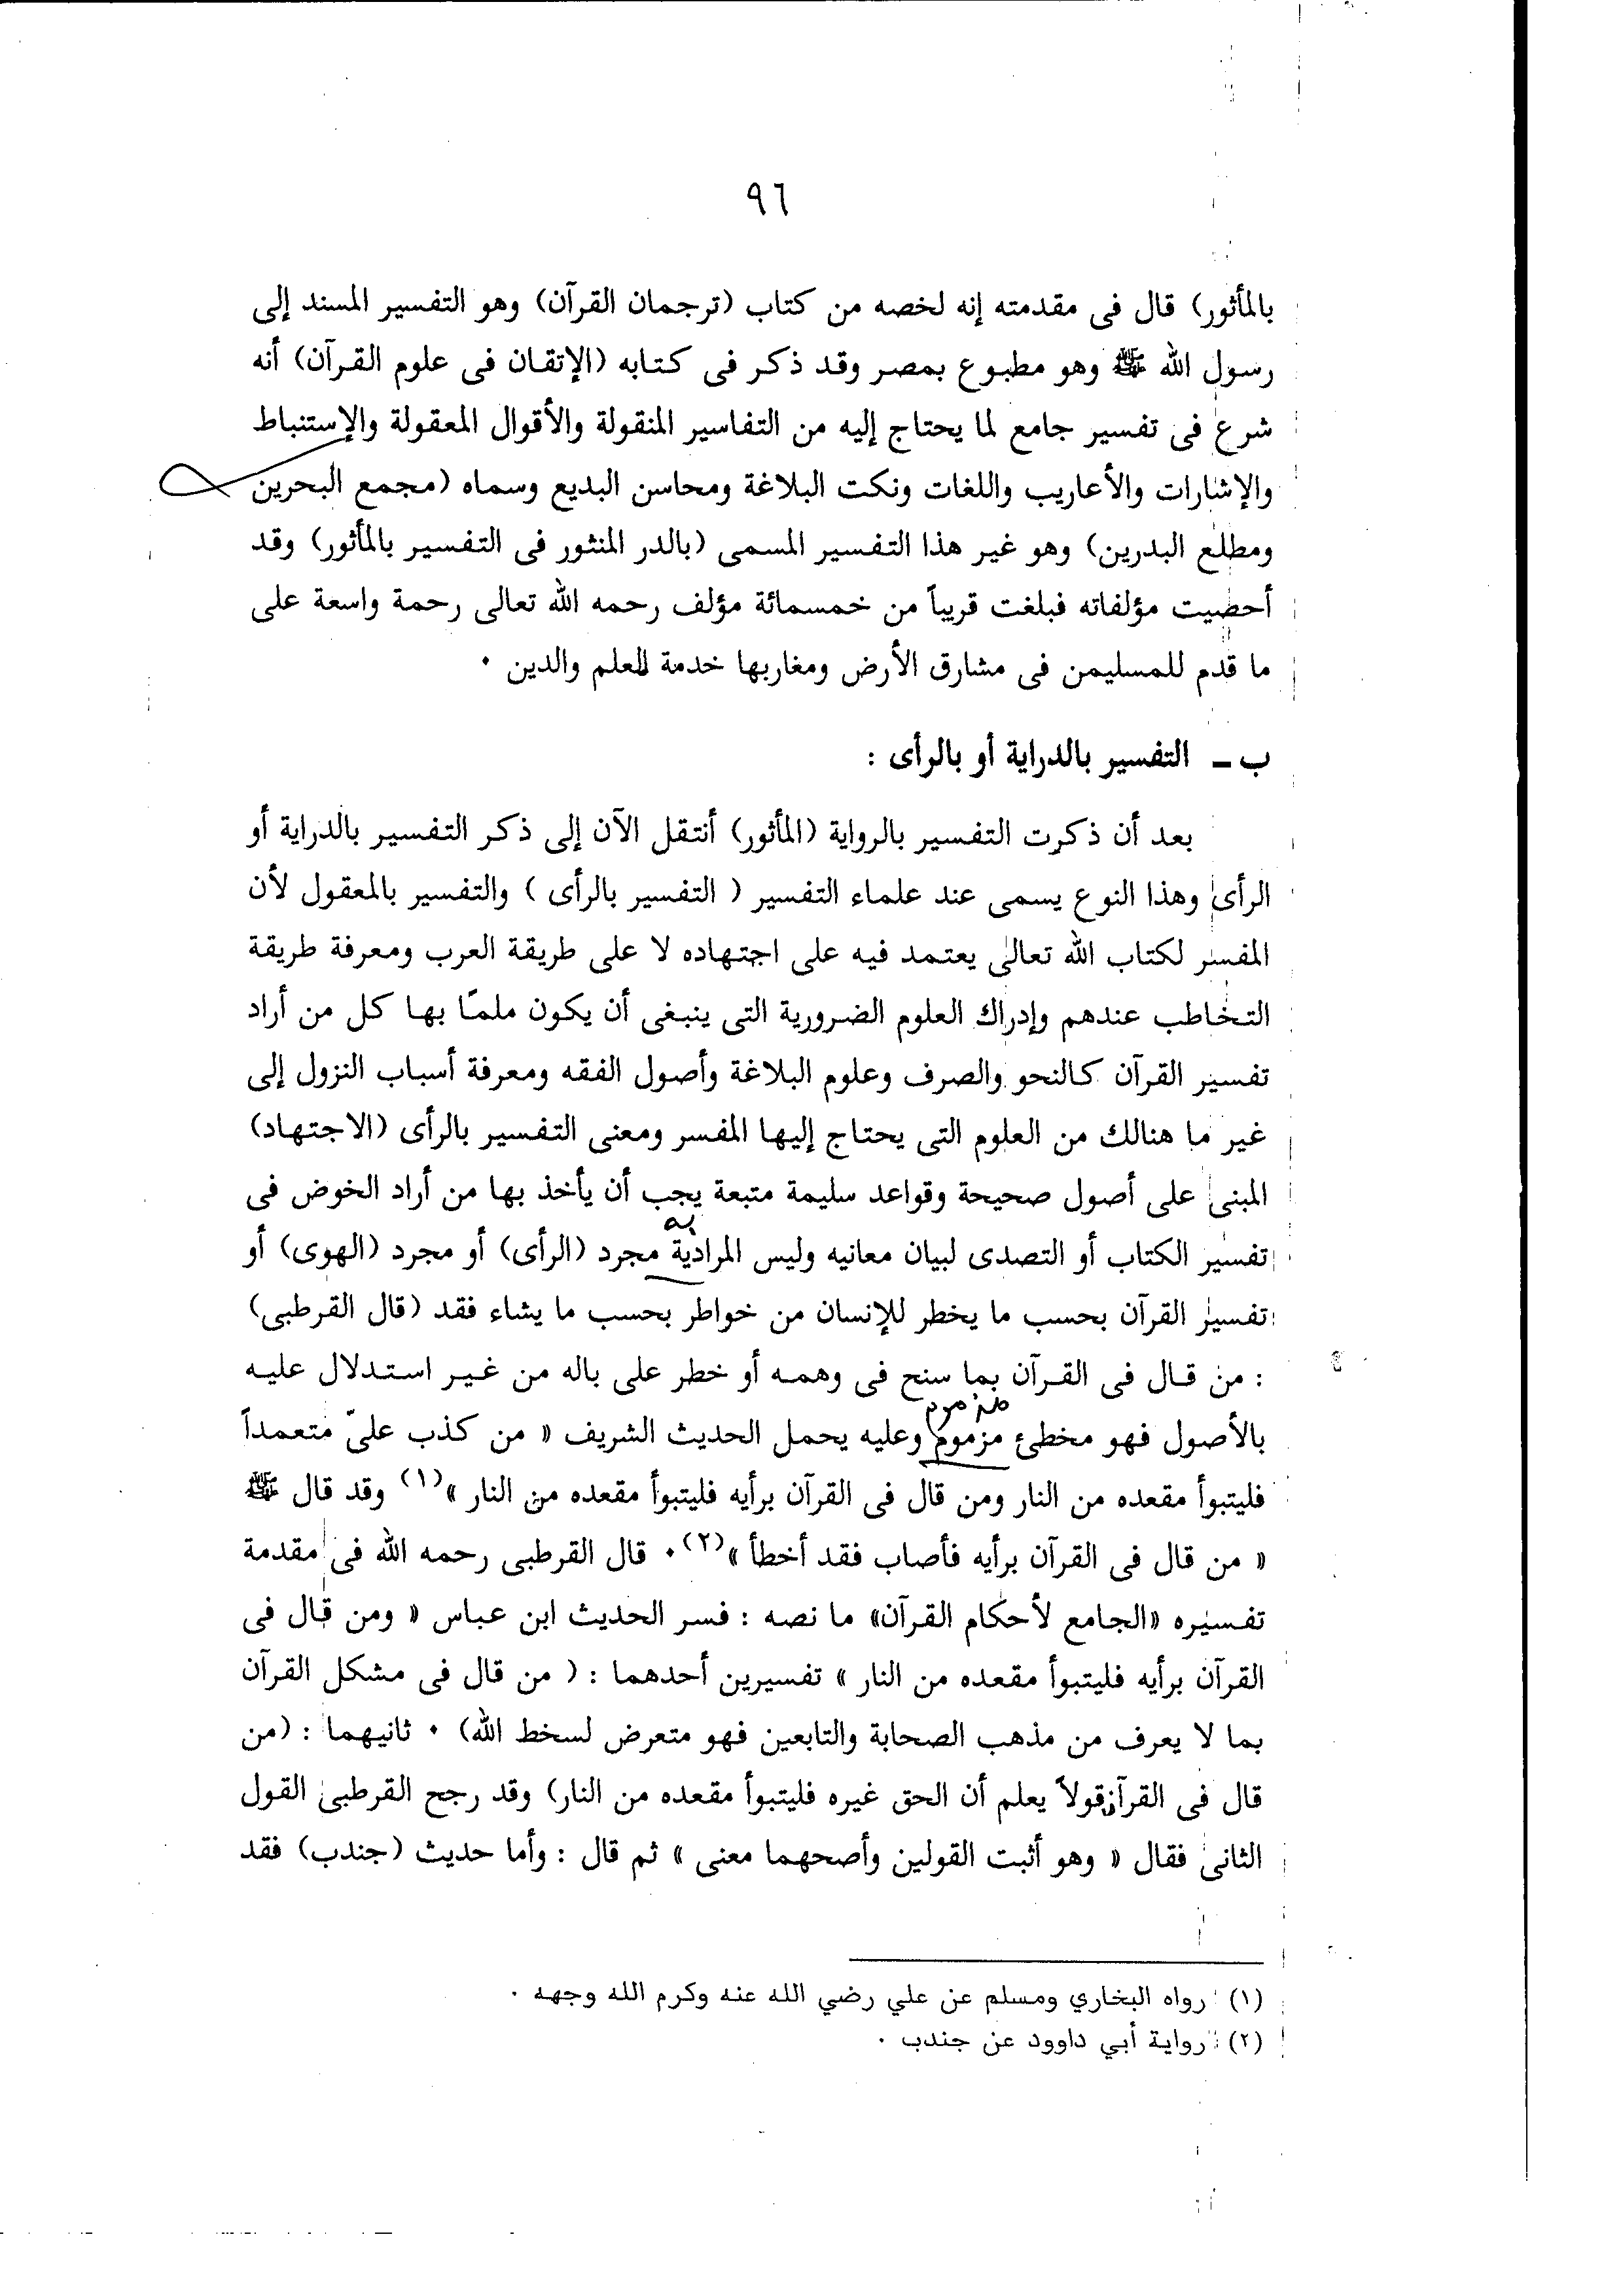 ٩٦
بالمأثور) قال فى مقدمته إنه لخصه من كتاب (ترجمان القرآن) وهو التفسير المسند إلى
رسول الله ﷺ وهو مطبوع بمصر وقد ذكر فى كتابه (الإتقان فى علوم القرآن) أنه
شرع فى تفسير جامع لما يحتاج إليه من التفاسير المنقولة والأقوال المعقولة والإستنباط
والإشارات والأعاريب واللغات ونكت البلاغة ومحاسن البديع وسماه (مجمع البحرين
ومطلع البدرين) وهو غير هذا التفسير المسمى (بالدر المنثور فى التفسير بالمأثور) وقد
أحصيت مؤلفاته فبلغت قريباً من خمسمائة مؤلف رحمه الله تعالى رحمة واسعة على
ما قدم للمسليمن فى مشارق الأرض ومغاربها خدمة للعلم والدين ٠
ب ــ التفسير بالدراية أو بالرأى :
بعد أن ذكرت التفسير بالرواية (المأثور) أنتقل الآن إلى ذكر التفسير بالدراية أو
الرأى وهذا النوع يسمى عند علماء التفسير ( التفسير بالرأى ) والتفسير بالمعقول لأن
المفسر لكتاب الله تعالى يعتمد فيه على اجتهاده لا على طريقة العرب ومعرفة طريقة
التخاطب عندهم وإدراك العلوم الضرورية التى ينبغى أن يكون ملمًا بها كل من أراد
تفسير القرآن كالنحو والصرف وعلوم البلاغة وأصول الفقه ومعرفة أسباب النزول إلى
غير ما هنالك من العلوم التى يحتاج إليها المفسر ومعنى التفسير بالرأى (الاجتهاد)
المبنى على أصول صحيحة وقواعد سليمة متبعة يجب أن يأخذ بها من أراد الخوض فى
به
تفسير الكتاب أو التصدى لبيان معانيه وليس المرادية مجرد (الرأى) أو مجرد (الهوى) أو
تفسير القرآن بحسب ما يخطر للإنسان من خواطر بحسب ما يشاء فقد (قال القرطبى)
: من قال فى القرآن بما سنح فى وهمه أو خطر على باله من غير استدلال عليه
مذموم
بالأصول فهو مخطئ مزموم وعليه يحمل الحديث الشريف « من كذب علىّ متعمداً
فليتبوأ مقعده من النار ومن قال فى القرآن برأيه فليتبوأ مقعده من النار »(١) وقد قال ﷺ
« من قال فى القرآن برأيه فأصاب فقد أخطأ »(٢)٠ قال القرطبى رحمه الله فى مقدمة
تفسيره «الجامع لأحكام القرآن» ما نصه : فسر الحديث ابن عباس « ومن قال فى
القرآن برأيه فليتبوأ مقعده من النار » تفسيرين أحدهما : ( من قال فى مشكل القرآن
بما لا يعرف من مذهب الصحابة والتابعين فهو متعرض لسخط الله) ٠ ثانيهما : (من
قال فى القرآن قولاً يعلم أن الحق غيره فليتبوأ مقعده من النار) وقد رجح القرطبى القول
الثانى فقال « وهو أثبت القولين وأصحهما معنى » ثم قال : وأما حديث (جندب) فقد
(١) رواه البخاري ومسلم عن علي رضي الله عنه وكرم الله وجهه .
(٢) رواية أبي داوود عن جندب .